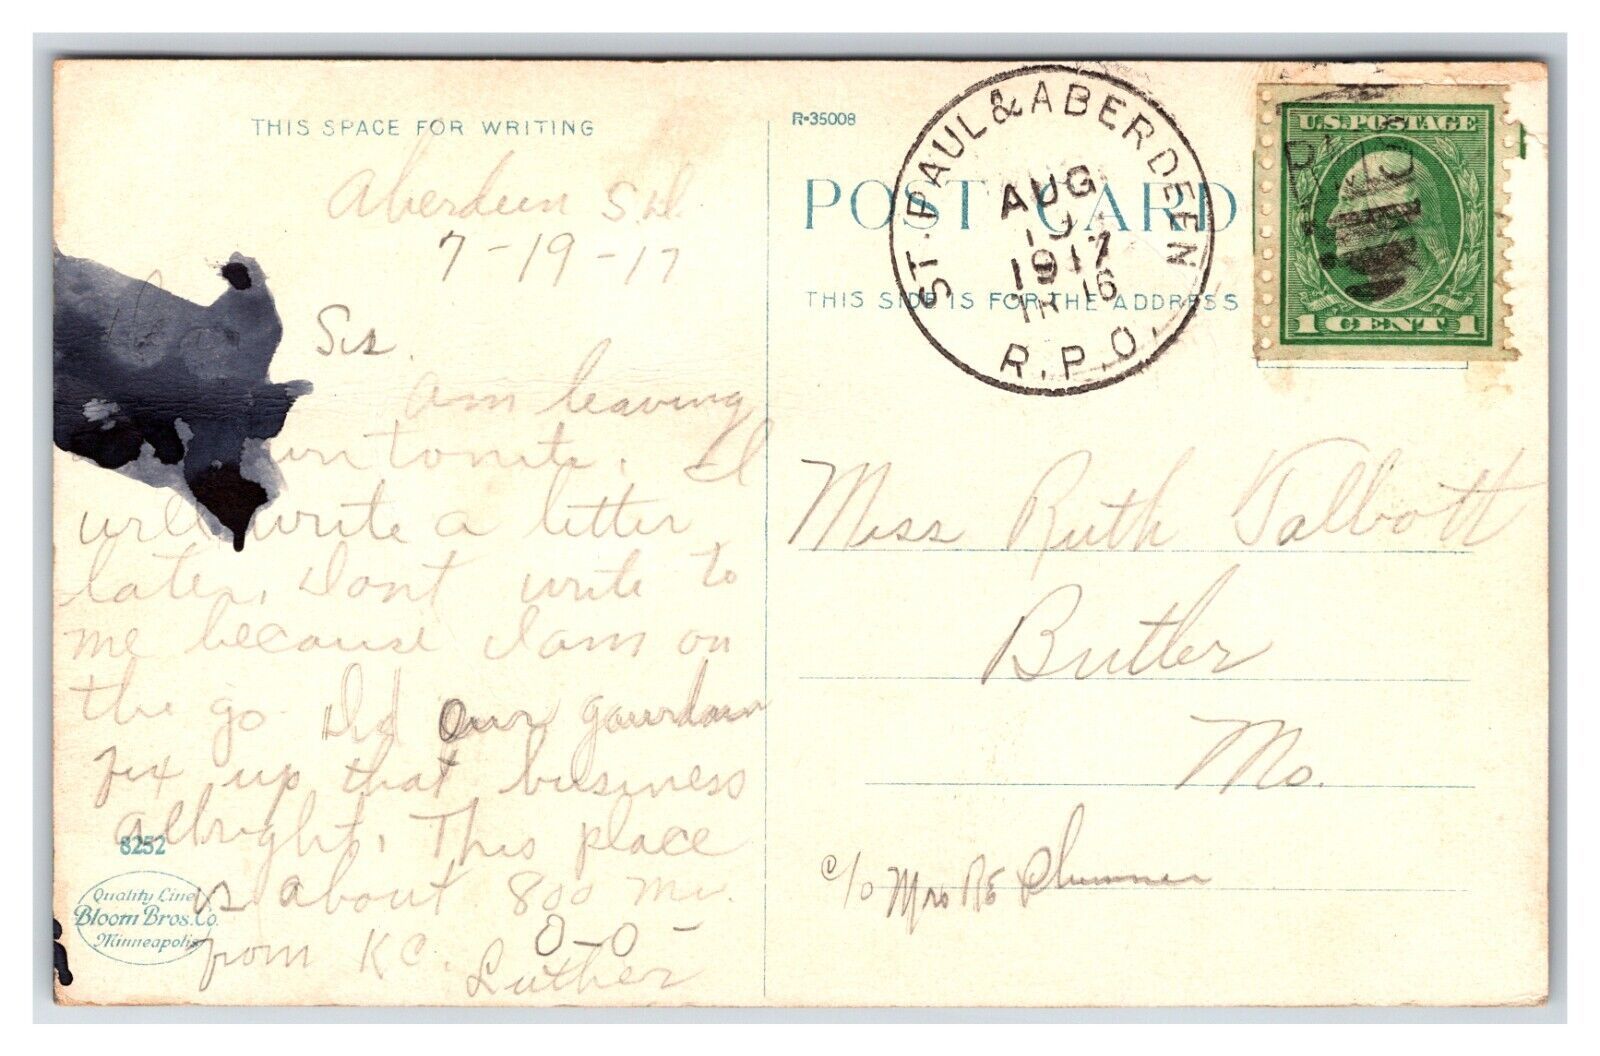 THIS SPACE FOR WRITING
Aberdeen S.D.
7-19-17
Dear Sis.
Am leaving
tonite. I
will write a letter
later, Dont write to
me because I am on
the go Did our gaurdain
fix up that business
allright. This place
is about 800 mi.
from K C. 0-0-
Luther
8252
Quality Line
Bloom Bros. Co.
Minneapolis
R-35008
POST CARD
THIS SIDE IS FOR THE ADDRESS
ST. PAUL & ABERDEEN
AUG
19
1917
TR 16
R.P.O.
U.S. POSTAGE
1 CENT 1
Miss Ruth Talbott
Butler
Mo.
c/o Mrs RE